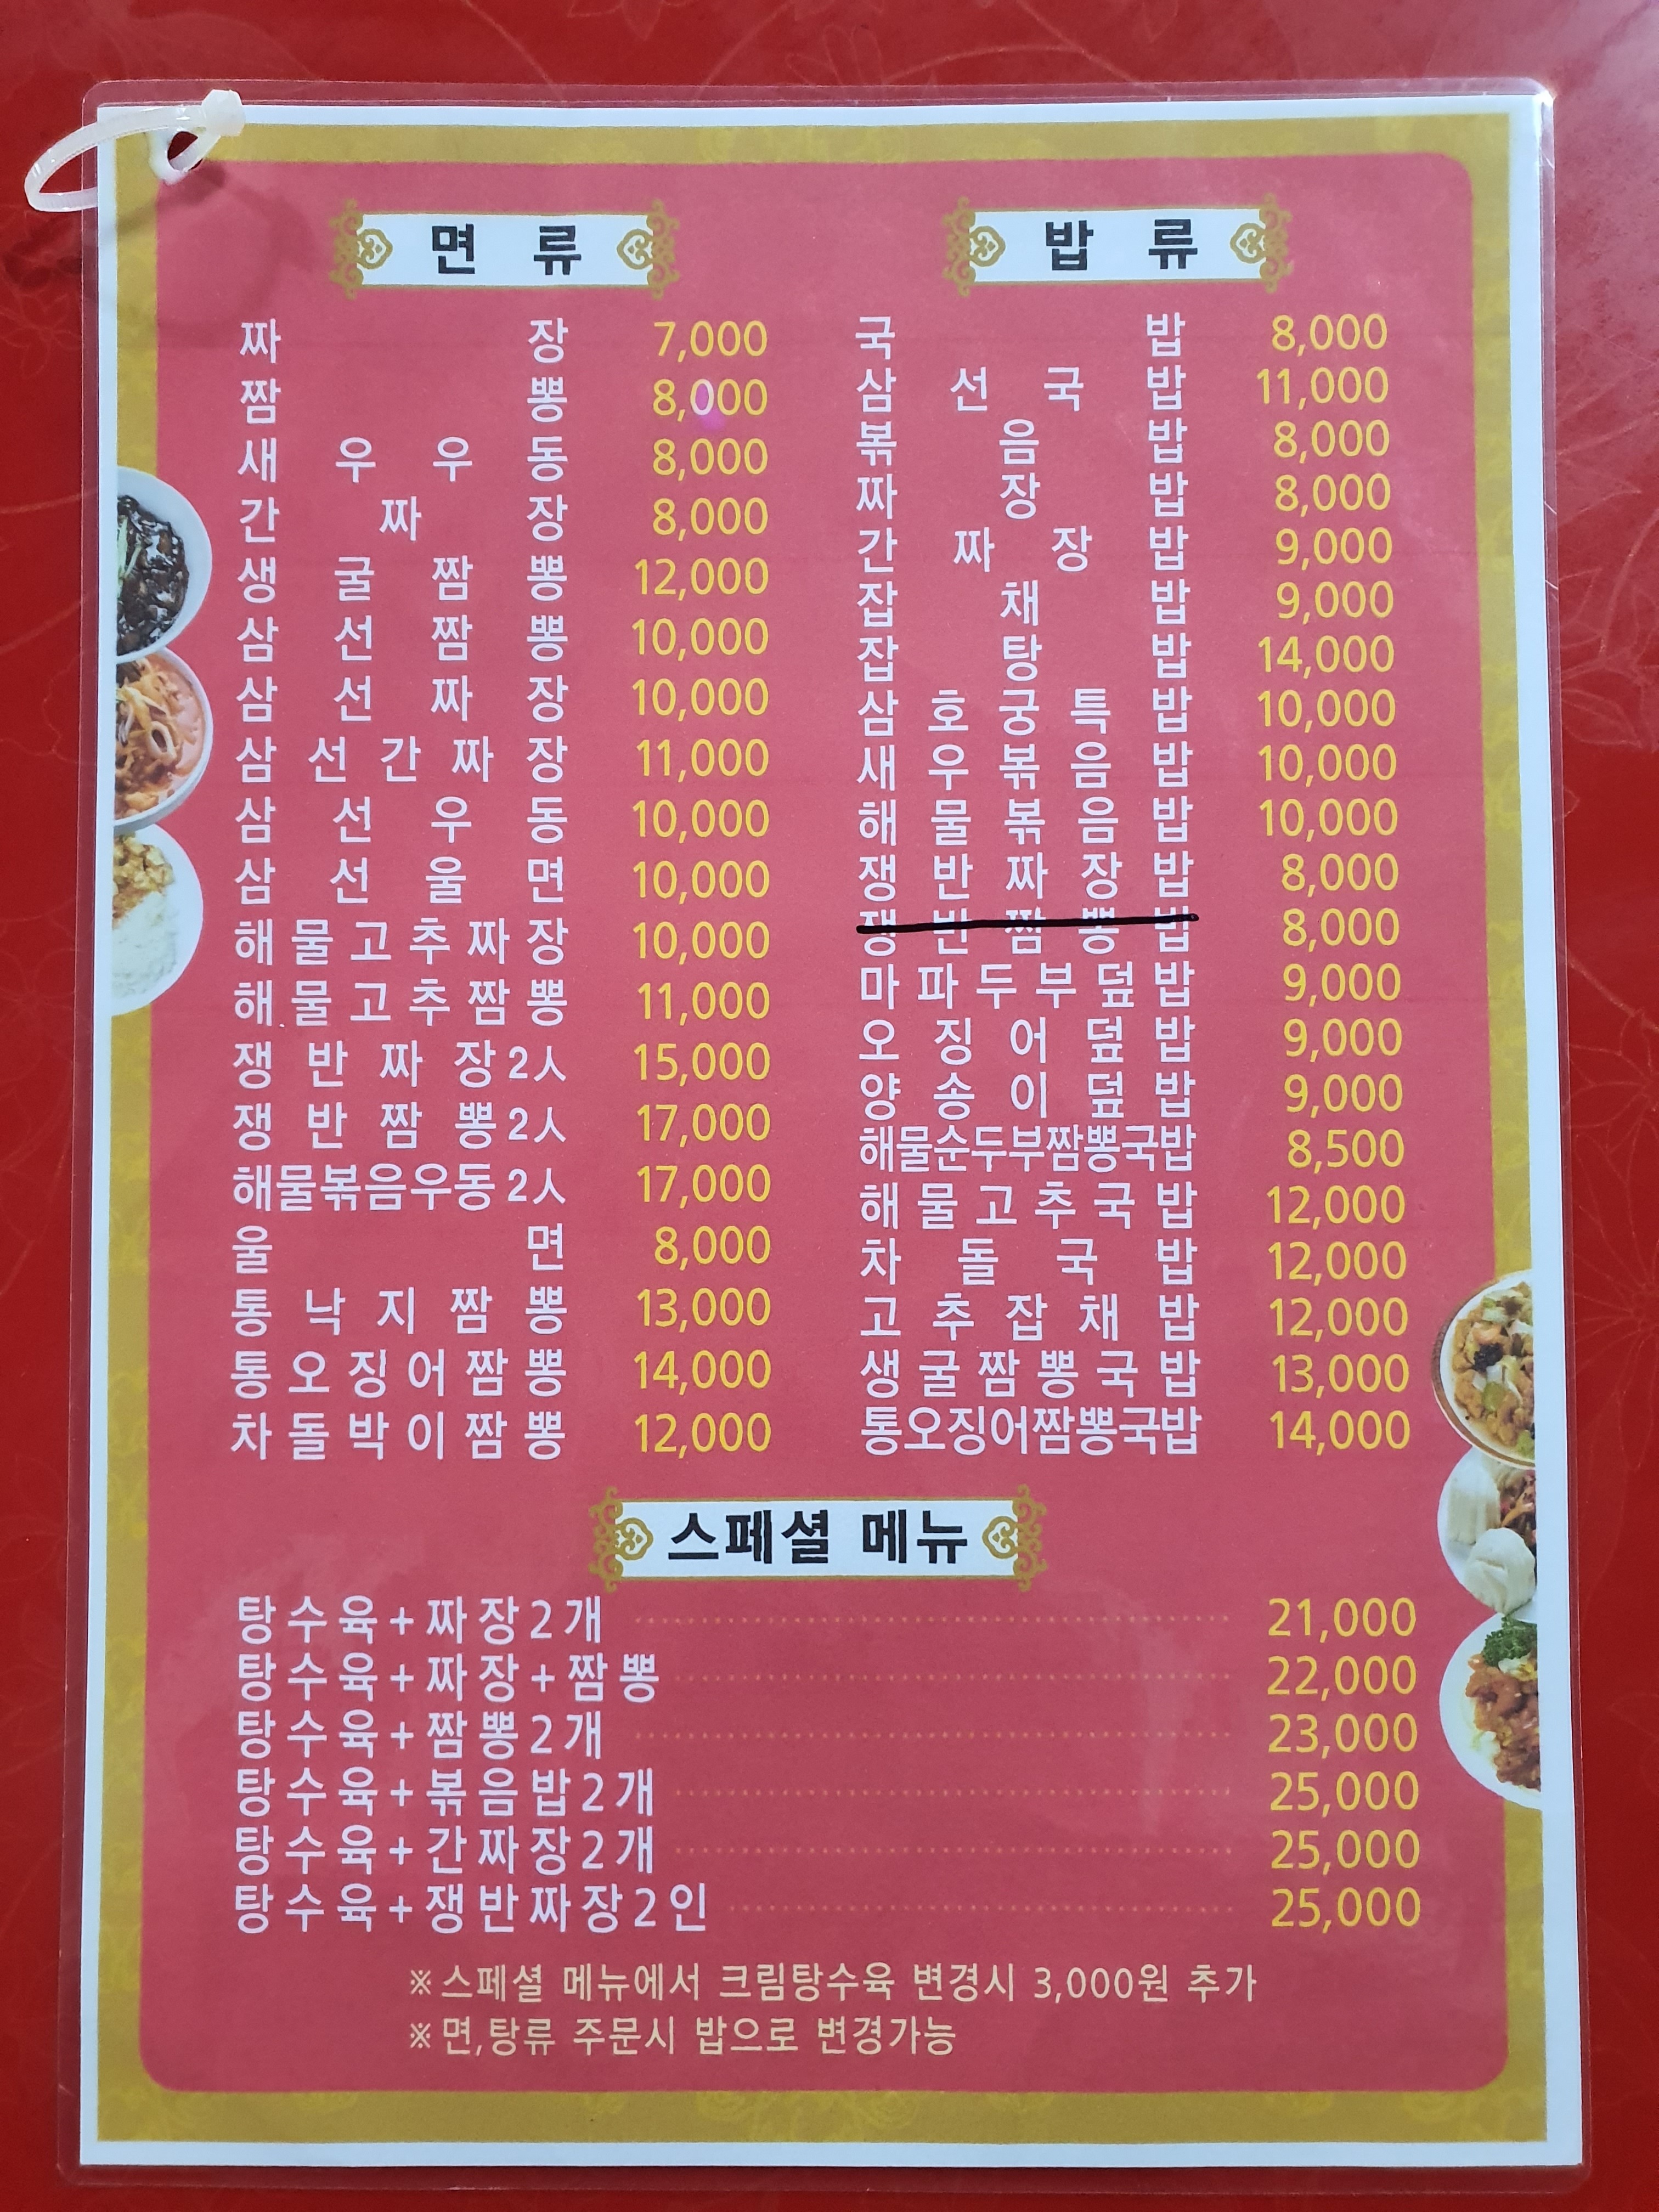 면 류
짜 장 7,000
짬 뽕 8,000
새 우 우 동 8,000
간 짜 장 8,000
생 굴 짬 뽕 12,000
삼 선 짬 뽕 10,000
삼 선 짜 장 10,000
삼 선 간 짜 장 11,000
삼 선 우 동 10,000
삼 선 울 면 10,000
해 물 고 추 짜 장 10,000
해 물 고 추 짬 뽕 11,000
쟁 반 짜 장 2人 15,000
쟁 반 짬 뽕 2人 17,000
해물볶음우동 2人 17,000
울 면 8,000
통 낙 지 짬 뽕 13,000
통 오 징 어 짬 뽕 14,000
차 돌 박 이 짬 뽕 12,000
밥 류
국 밥 8,000
삼 선 국 밥 11,000
볶 음 밥 8,000
짜 장 밥 8,000
간 짜 장 밥 9,000
잡 채 밥 9,000
잡 탕 밥 14,000
삼 호 궁 특 밥 10,000
새 우 볶 음 밥 10,000
해 물 볶 음 밥 10,000
쟁 반 짜 장 밥 8,000
쟁 반 짬 뽕 밥 8,000
마 파 두 부 덮 밥 9,000
오 징 어 덮 밥 9,000
양 송 이 덮 밥 9,000
해물순두부짬뽕국밥 8,500
해 물 고 추 국 밥 12,000
차 돌 국 밥 12,000
고 추 잡 채 밥 12,000
생 굴 짬 뽕 국 밥 13,000
통오징어짬뽕국밥 14,000
스페셜 메뉴
탕수육+짜장2개 21,000
탕수육+짜장+짬뽕 22,000
탕수육+짬뽕2개 23,000
탕수육+볶음밥2개 25,000
탕수육+간짜장2개 25,000
탕수육+쟁반짜장2인 25,000
※스페셜 메뉴에서 크림탕수육 변경시 3,000원 추가
※면,탕류 주문시 밥으로 변경가능